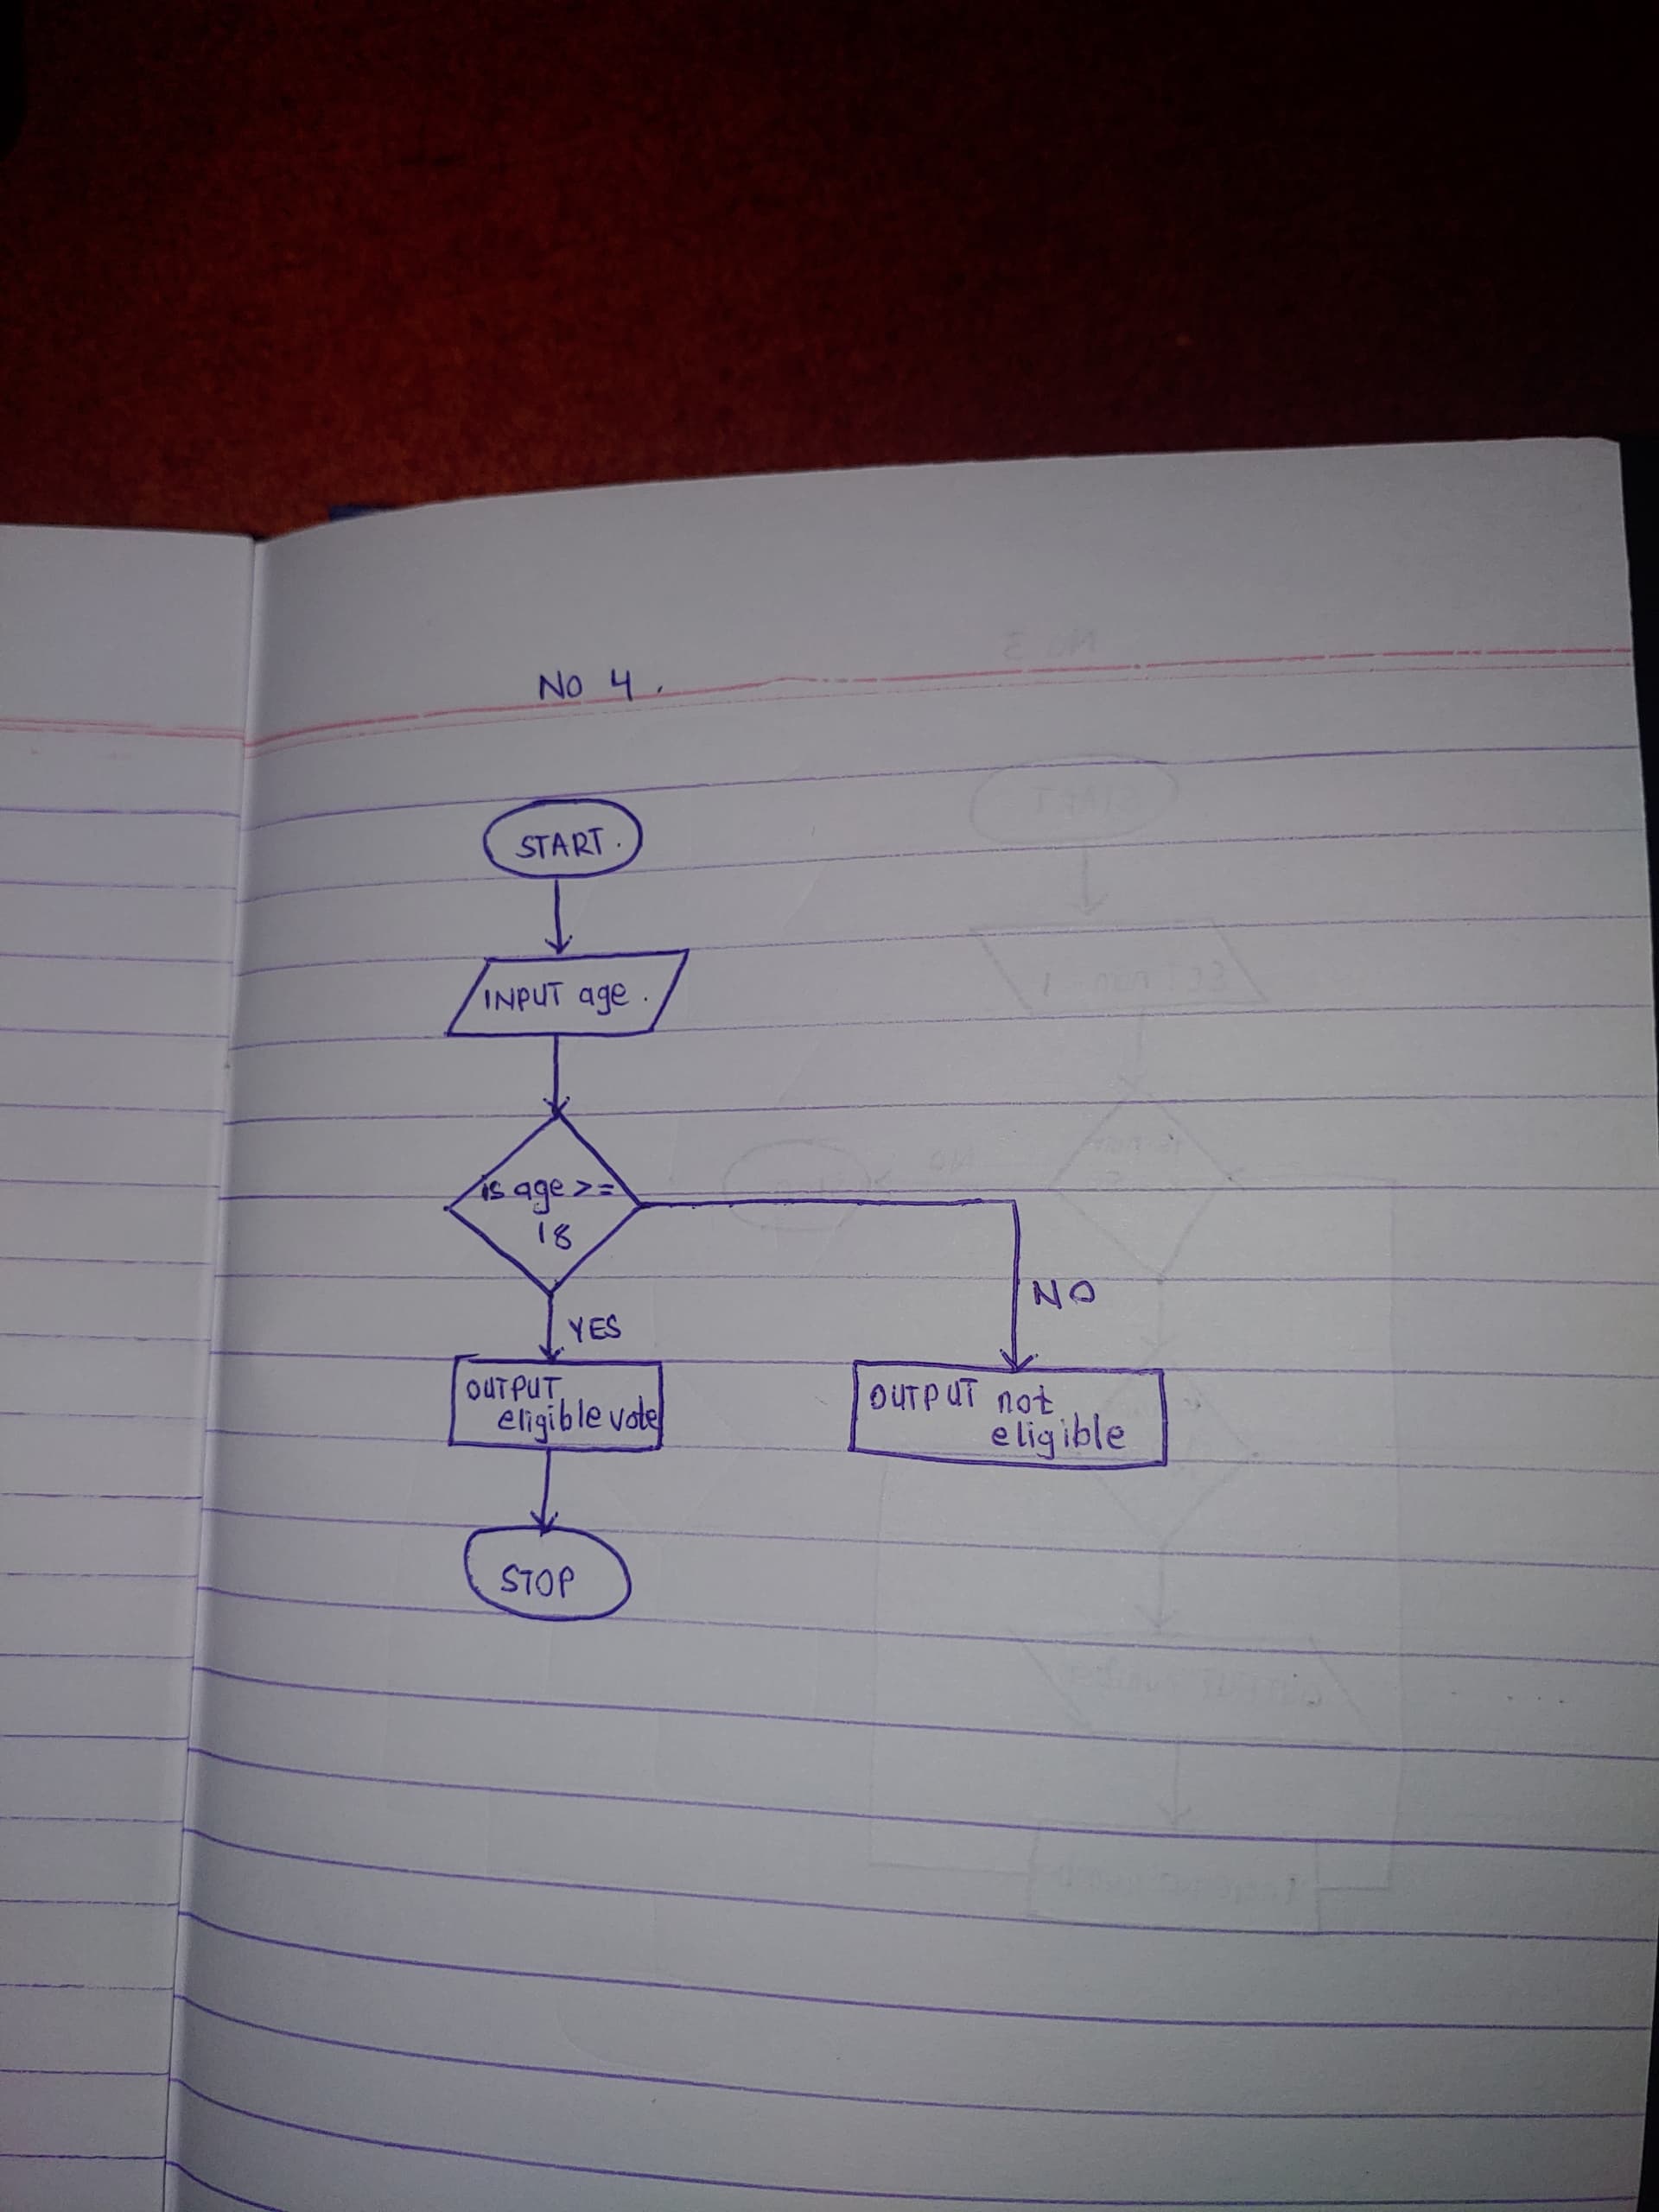 No 4.
START.
INPUT age.
is age >=
18
YES
NO
OUTPUT
eligible vote
OUTPUT not
eligible
STOP